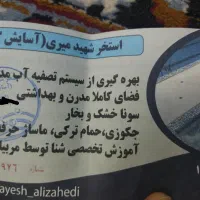 استخر شهید میری (آسایش
بهره گیری از سیستم تصفیه آب مد
فضای کاملا مدرن و بهداشتی
سونا خشک و بخار
جکوزی، حمام ترکی، ماساژ حرفه
آموزش تخصصی شنا توسط مربیا
ayesh_alizahedi